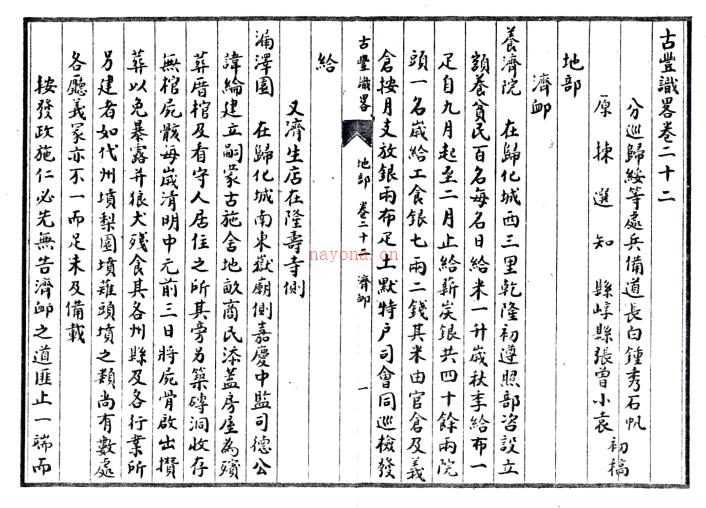 古豐識畧卷二十二
分巡歸綏等處兵備道長白鍾秀石帆
原揀選知縣崞縣張曾小袁
初稿
地部
濟卹
養濟院 在歸化城西三里乾隆初遵照部咨設立
額養貧民百名每名日給米一升歲秋季給布一
疋自九月起至二月止給薪炭銀共四十餘兩院
頭一名歲給工食銀七兩二錢其米由官倉及義
倉按月支放銀兩布疋土默特户司會同巡檢發
古豐識畧 地部 卷二十二 濟卹 一
給
又濟生店在隆壽寺側
漏澤園 在歸化城南東嶽廟側嘉慶中監司德公
諱綸建立嗣蒙古施舍地畝商民添蓋房屋為殯
葬厝棺及看守人居住之所其旁另築磚洞收存
無棺屍骸每歲清明中元前三日將屍骨啟出攢
葬以免暴露并狼犬殘食其各州縣及各行業所
另建者如代州墳梨園墳雞頭墳之類尚有數處
各廳義冢亦不一而足未及備載
按發政施仁必先無告濟卹之道匪止一端而
nayona.cn